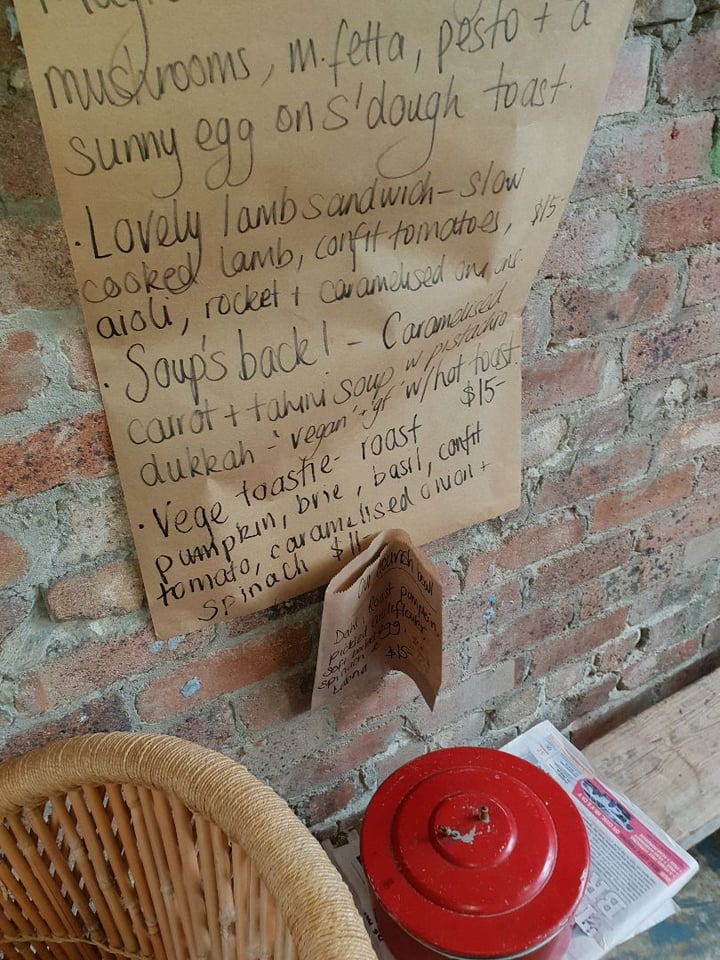 mushrooms, m.fetta, pesto + a
sunny egg on s'dough toast.
· Lovely lamb sandwich - slow
cooked lamb, confit tomatoes, $15-
aioli, rocket + caramelised onions.
· Soup's back! - Caramelised
carrot + tahini soup w pistachio
dukkah - 'vegan' + 'gf' w/ hot toast
$15-
· Vege toastie - roast
pumpkin, brie, basil, confit
tomato, caramelised onion +
spinach $11-
nourish bowl
Dahl, Roast pumpkin,
pickled cauliflower
soft boiled egg,
spinach & $15
labna